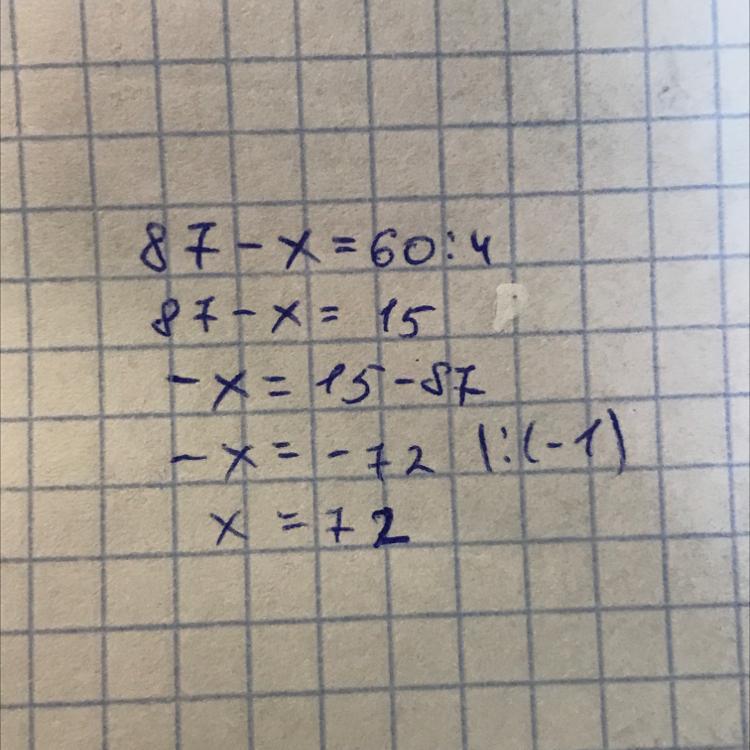 87 - x = 60 : 4
87 - x = 15
- x = 15 - 87
- x = - 72 | : (-1)
x = 72